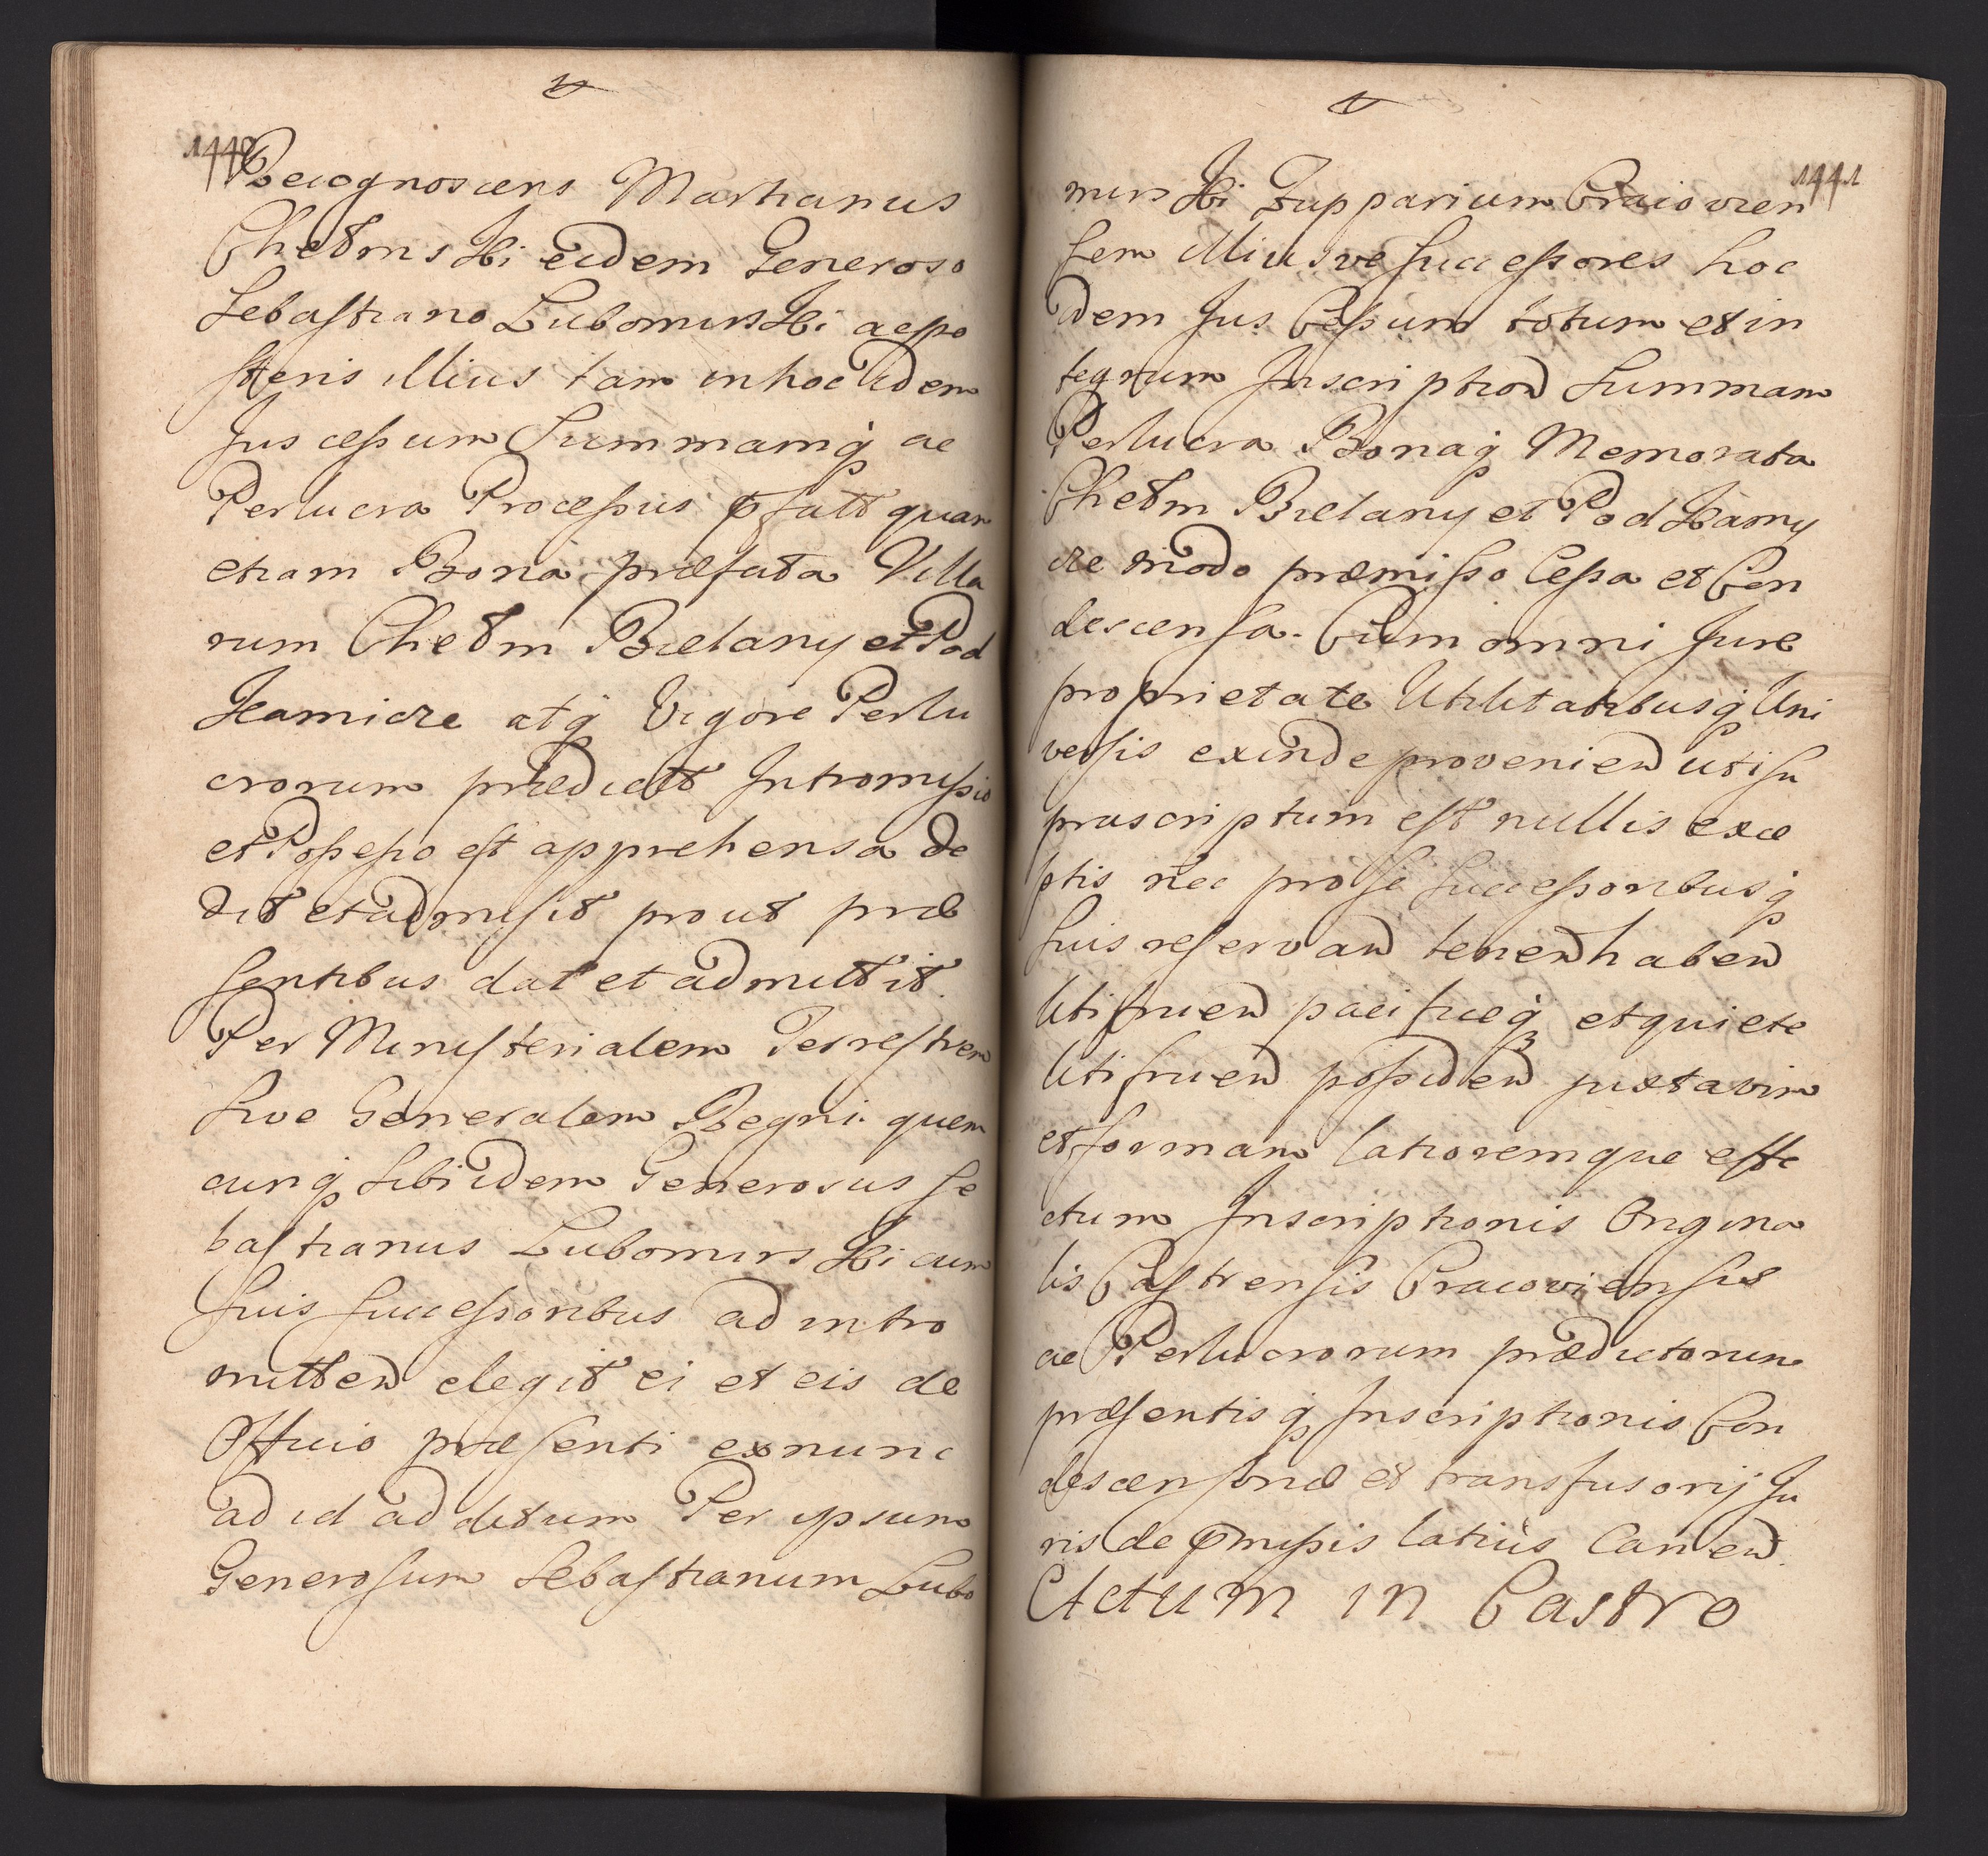 1440
Recognoscens Martianus
Chełmski eidem Generoso
Sebastiano Lubomirski ac po
steris illius tam in hoc idem
Jus cessum Summamq̃ ac
Perlucra Processus p̄fatt quam
etiam Bona præfata Villa
rum Chełm Bielany et Pod
Kamicze atq̃ Vigore Perlu
crorum prædictt Intromissio
et Possessio est apprehensa de
dit et admisit prout præ
sentibus dat et admittit
Per Ministerialem Terrestrem
sive Generalem Regni quem
cunq̃ sibi idem Generosus Se
bastianus Lubomirski cum
suis successoribus ad intro
mitten̄ elegit ei et eis de
Officio præsenti ex nunc
ad id additum Per ipsum
Generosum Sebastianum Lubo
1441
mirski Zupparium Cracovien
sem illiusve successores hoc
idem Jus Cessum totum et in
tegrum Inscription̄ Summam
Perlucra Bonaq̃ Memorata
Chełm Bielany et Pod Kamy
cze modo præmisso Cessa et Con
descensa. Cum omni Jure
proprietate Utilitatibusq̃ Uni
versis exinde provenien̄ uti su
prascriptum est nullis exce
ptis nec pro se successoribusq̃
suis reservan̄ tenen̄ haben̄
Utifruen̄ pacificeq̃ et quiete
Utifruen̄ possiden̄ juxta vim
et formam latioremque effe
ctum Inscriptionis Origina
lis Castrensis Cracoviensis
ac Perlucrorum prædictorum
præsentisq̃ Inscriptionis Con
descensoriæ et transfusorij Ju
ris de p̄missis latius Canen̄.
Actum in Castro